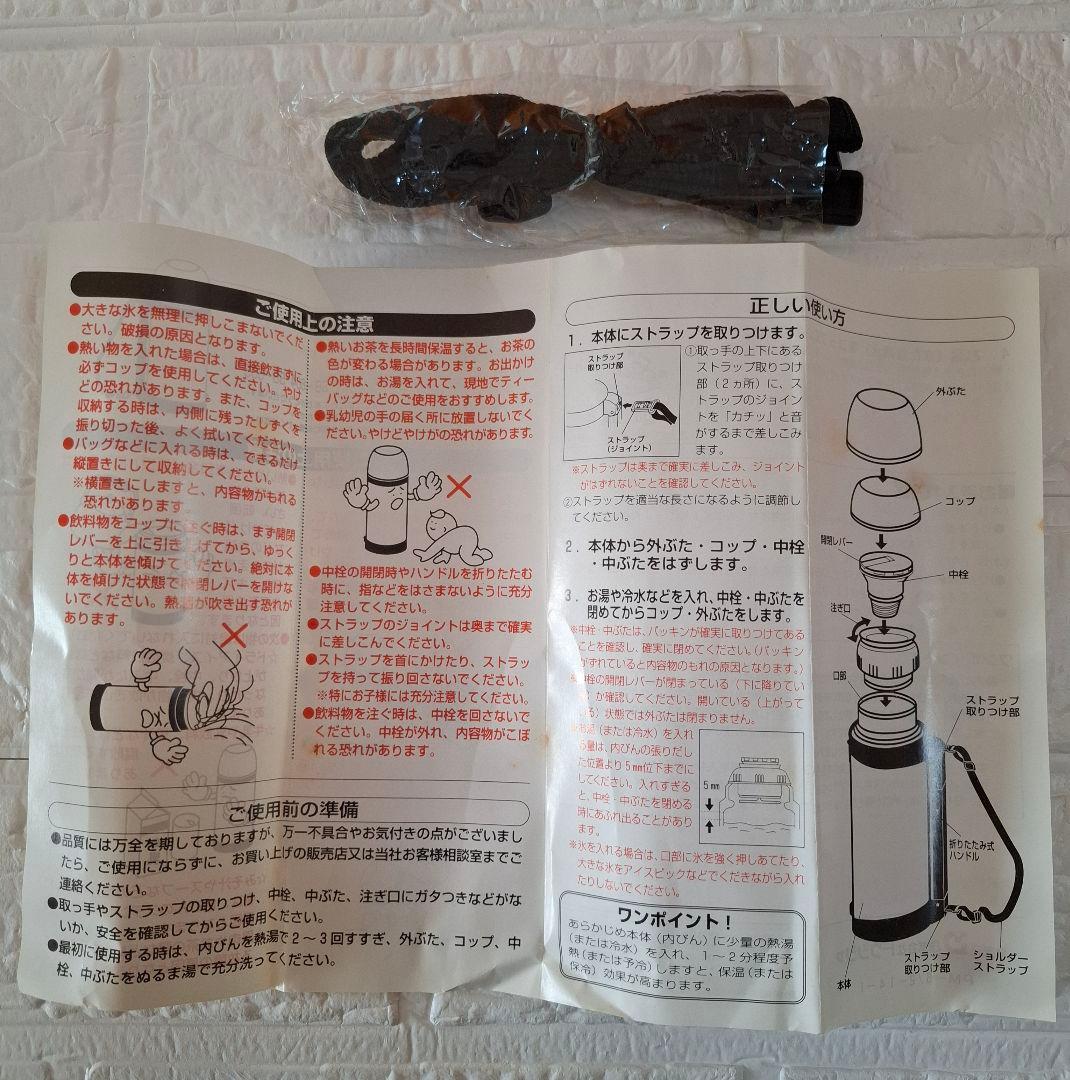 ご使用上の注意
●大きな氷を無理に押しこまないでくだ
さい。破損の原因となります。
●熱い物を入れた場合は、直接飲まずに
必ずコップを使用してください。やけ
どの恐れがあります。また、コップを
収納する時は、内側に残ったしずくを
振り切った後、よく拭いてください。
●バッグなどに入れる時は、できるだけ
縦置きにして収納してください。
※横置きにしますと、内容物がもれる
恐れがあります。
●飲料物をコップに注ぐ時は、まず開閉
レバーを上に引き上げてから、ゆっく
りと本体を傾けてください。絶対に本
体を傾けた状態で開閉レバーを開けな
いでください。熱湯が吹き出す恐れが
あります。
●熱いお茶を長時間保温すると、お茶の
色が変わる場合があります。お出かけ
の時は、お湯を入れて、現地でティー
バッグなどの使用をおすすめします。
●乳幼児の手の届く所に放置しないでく
ださい。やけどやけがの恐れがあります。
●中栓の開閉時やハンドルを折りたたむ
時に、指などをはさまないように充分
注意してください。
●ストラップのジョイントは奥まで確実
に差しこんでください。
●ストラップを首にかけたり、ストラッ
プを持って振り回さないでください。
※特にお子様には充分注意してください。
●飲料物を注ぐ時は、中栓を回さないで
ください。中栓が外れ、内容物がこぼ
れる恐れがあります。
ご使用前の準備
●品質には万全を期しておりますが、万一不具合やお気付きの点がございまし
たら、ご使用にならずに、お買い上げの販売店又は当社お客様相談室までご
連絡ください。
●取っ手やストラップの取りつけ、中栓、中ぶた、注ぎ口にガタつきなどがな
いか、安全を確認してからご使用ください。
●最初に使用する時は、内びんを熱湯で2～3回すすぎ、外ぶた、コップ、中
栓、中ぶたをぬるま湯で充分洗ってください。
正しい使い方
1．本体にストラップを取りつけます。
ストラップ
取りつけ部
ストラップ
(ジョイント)
①取っ手の上下にある
ストラップ取りつけ
部（2ヵ所）に、ス
トラップのジョイン
トを「カチッ」と音
がするまで差しこみ
ます。
※ストラップは奥まで確実に差しこみ、ジョイント
がはずれないことを確認してください。
②ストラップを適当な長さになるように調節し
てください。
2．本体から外ぶた・コップ・中栓
・中ぶたをはずします。
3．お湯や冷水などを入れ、中栓・中ぶたを
閉めてからコップ・外ぶたをします。
※中栓・中ぶたは、パッキンが確実に取りつけてある
ことを確認し、確実に閉めてください。（パッキン
がずれていると内容物のもれの原因となります。）
※中栓の開閉レバーが閉まっている（下に降りてい
る）か確認してください。開いている（上がって
いる）状態では外ぶたは閉まりません。
※お湯（または冷水）を入れ
る量は、内びんの張りだし
た位置より5mm位下までに
してください。入れすぎる
と、中栓・中ぶたを閉める
時にあふれ出ることがあり
ます。
5mm
※氷を入れる場合は、口部に氷を強く押しあてたり、
大きな氷をアイスピックなどでくだきながら入れ
たりしないでください。
ワンポイント！
あらかじめ本体（内びん）に少量の熱湯
（または冷水）を入れ、1～2分程度予
熱（または予冷）しますと、保温（または
保冷）効果が高まります。
外ぶた
コップ
開閉レバー
中栓
注ぎ口
口部
ストラップ
取りつけ部
折りたたみ式
ハンドル
ストラップ
取りつけ部
ショルダー
ストラップ
本体